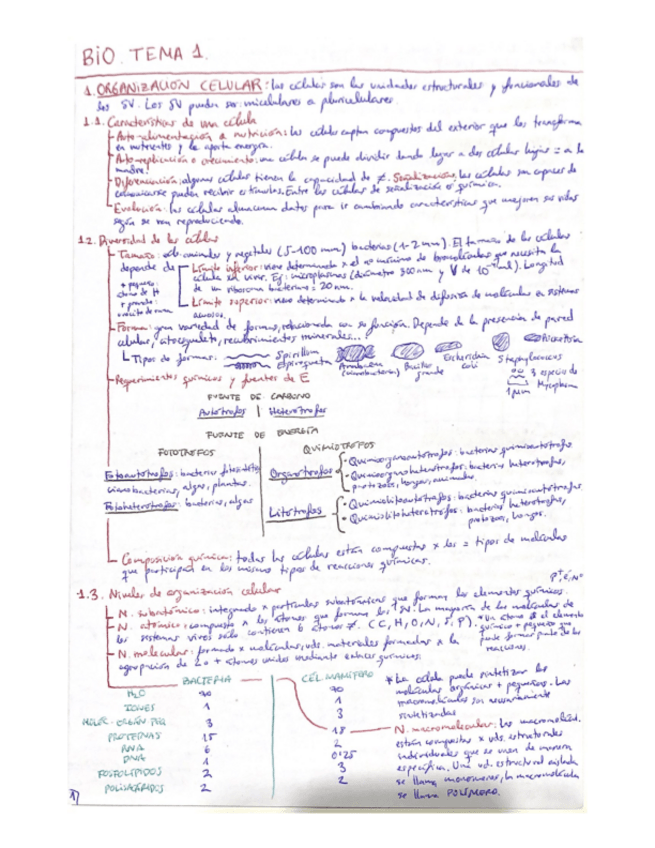 BIO. TEMA 1.
1. ORGANIZACIÓN CELULAR: las células son las unidades estructurales y funcionales de
los SV. Los SV pueden ser: unicelulares o pluricelulares.
1.1. Características de una célula
Auto-alimentación o nutrición: las células captan compuestos del exterior que los transforma
en nutrientes y le aporta energía.
Auto-replicación o crecimiento: una célula se puede dividir dando lugar a dos células hijas = a la
madre.
Diferenciación: algunas células tienen la capacidad de ≠. Señalización: las células son capaces de
comunicarse pueden recibir estímulos. Entre las células de señalización es química.
Evolución: las células almacenan datos para ir cambiando características que mejoren sus vidas
según se van reproduciendo.
1.2. Diversidad de las células
Tamaño: animales y vegetales (5-100 mm) bacterias (1-2 mm). El tamaño de las células
depende de
Límite inferior: viene determinado x el nº mínimo de biomoléculas que necesita la
célula vivir. Ej: microplasmas (diámetro 300 nm y V de 10 mL). Longitud
de un ribosoma bacteriano = 20 nm.
Límite superior: viene determinado x la velocidad de difusión de moléculas en sistemas
acuosos.
+ pequeño:
átomo de H
+ grande:
Forma: gran variedad de formas, relacionada con su función. Depende de la presencia de pared
celular, citoesqueleto, recubrimientos minerales...
Tipos de formas: Spirillum
Espiroqueta
Anabaena
(cianobacteria)
Bacillus
grande
Escherichia
coli
Staphylococcus
3 especies de
Mycoplasma
1 µm
Requerimientos químicos y fuentes de E
FUENTE DE CARBONO
Autótrofos | Heterótrofos
FUENTE DE ENERGÍA
FOTOTROFOS QUIMIOTROFOS
Fotoautótrofos: bacterias
cianobacterias, algas, plantas.
Fotoheterótrofos: bacterias, algas
Organotrofos
• Quimiorganoautótrofos: bacterias quimioautótrofas
• Quimiorganoheterótrofos: bacterias heterótrofas,
protozoos, hongos, animales.
Litótrofos
• Quimiolitoautótrofos: bacterias quimioautótrofas
• Quimiolitoheterótrofos: bacterias heterótrofas,
protozoos, hongos.
Composición química: todas las células están compuestas x los = tipos de moléculas
que participan en los mismos tipos de reacciones químicas.
1.3. Niveles de organización celular
N. subatómico: integrado x partículas subatómicas que forman los elementos químicos.
N. atómico: compuesto x los átomos que forman los SV. La mayoría de las moléculas de
los sistemas vivos sólo contienen 6 átomos ≠. (C, H, O, N, S, P).
N. molecular: formado x moléculas, uds. materiales formadas x la
agrupación de 2 o + átomos unidos mediante enlaces químicos.
• Un átomo es el elemento
químico + pequeño que
puede formar parte de las
reacciones.
BACTERIA CÉL. MAMÍFERO
H2O 70 70
IONES 1 1
MOLEC. ORGÁN PEQ 3 3
PROTEÍNAS 15 18
RNA 6 2
DNA 1 0'25
FOSFOLÍPIDOS 2 3
POLISACÁRIDOS 2 2
* La célula puede sintetizar las
moléculas orgánicas + pequeñas. Las
macromoléculas son necesariamente
sintetizadas
N. macromolecular: las macromoléc.
están compuestas x uds. estructurales
individuales que se unen de manera
específica. Una ud. estructural aislada
se llama monómero, la macromolécula
se llama POLÍMERO.
1